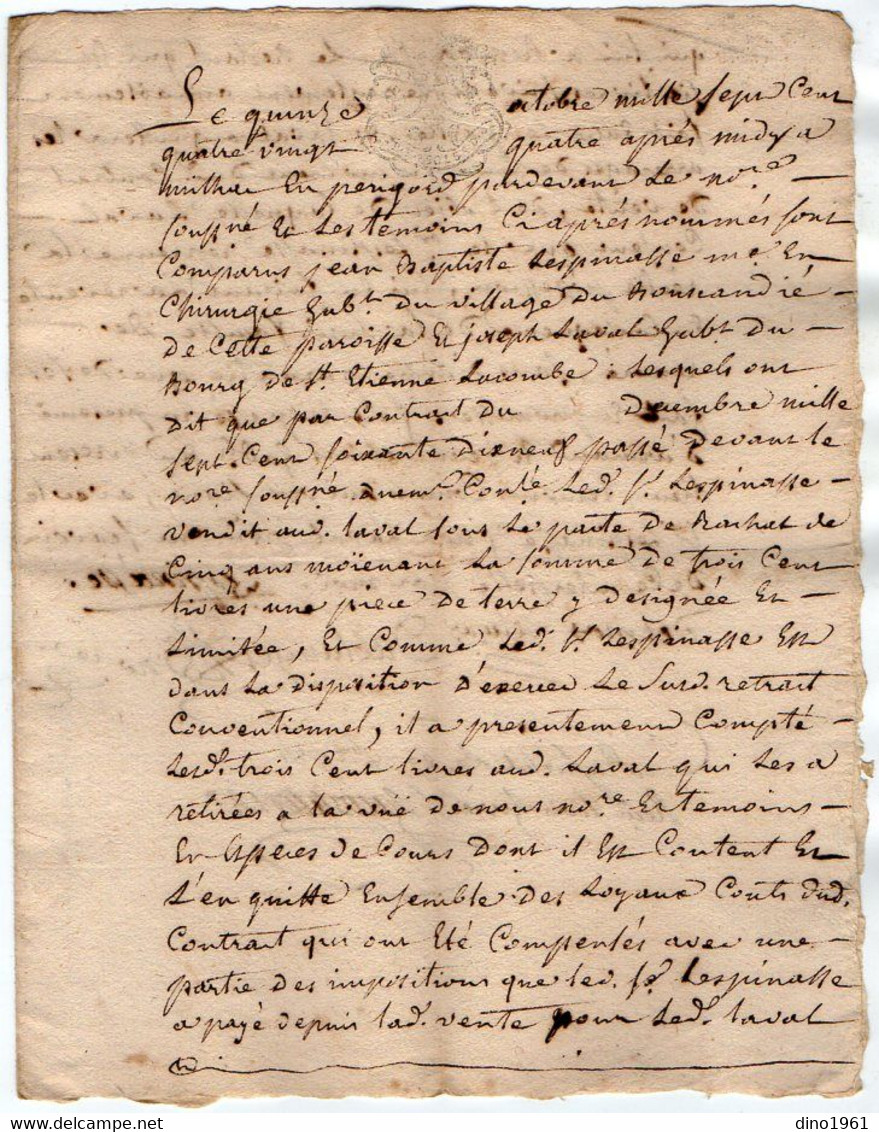 Le quinze octobre mille sept cent
quatre vingt quatre après midy a
milhac En perigord pardevant Le no.re
soussné Et Les temoins Ci après nommés sont
Comparus jean Baptiste Lespinasse me. En
Chirurgie habt. du village du
de Cette paroisse Et joseph Laval habt. du
Bourg de st. Etienne Lacombe; Lesquels ont
dit que par Contract du decembre mille
sept Cent soixante dixneuf passé devant le
no.re soussné Conlé. Led. sr. Lespinasse
vendit aud. laval sous Le pacte de Rachat de
Cinq ans moïenant La somme de trois Cent
livres une piece de terre y designée Et
Limitée, Et Comme Led. sr. Lespinasse Est
dans La disposition d'exercer Le susd. retrait
Conventionnel, il a presentement Compté
Lesd. trois Cent livres aud. Laval qui Les a
retirées a la vüe de nous no.re Et temoins
En Especes de Cours Dont il Est Content Et
L'en quitte Ensemble des Loyaux Couts dud.
Contract qui ont Eté Compensés avec une
partie des impositions que led. sr. Lespinasse
a payé depuis lad. vente pour Led. laval
dino1961